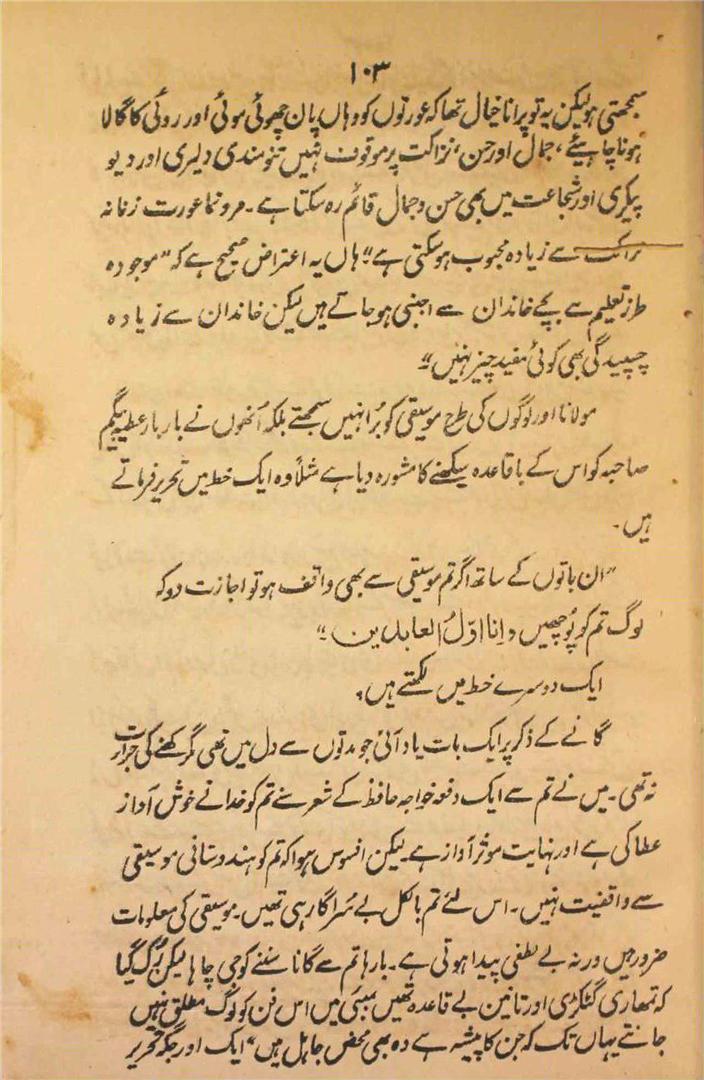 ۱۰۳
سمجھتی ہو لیکن یہ تو پرانا خیال تھا کہ عورتوں کو دھان پان چھوئی موئی اور روئی کا گالا
ہونا چاہیئے، جمال اور حسن، نزاکت پر موقوف نہیں تنومندی دلیری اور دیو
پیکری اور شجاعت میں بھی حسن و جمال قائم رہ سکتا ہے۔ مرد نما عورت زنانہ
نزاکت سے زیادہ محبوب ہو سکتی ہے" ہاں یہ اعتراض صحیح ہے کہ "موجودہ
طرز تعلیم سے بچے خاندان سے اجنبی ہو جاتے ہیں لیکن خاندان سے زیادہ
چسپیدگی بھی کوئی مفید چیز نہیں"
مولانا اور لوگوں کی طرح موسیقی کو برا نہیں سمجھتے بلکہ اُنھوں نے بار بار عطیہ بیگم
صاحبہ کو اس کے باقاعدہ سیکھنے کا مشورہ دیا ہے مثلاً وہ ایک خط میں تحریر فرماتے
ہیں۔
"ان باتوں کے ساتھ اگر تم موسیقی سے بھی واقف ہو تو اجازت دو کہ
لوگ تم کو پُوجھیں و انا اوّلُ العابدین"
ایک دوسرے خط میں لکھتے ہیں،
گانے کے ذکر پر ایک بات یاد آئی جو مدتوں سے دل میں تھی گر کہنے کی جرات
نہ تھی۔ میں نے تم سے ایک دفعہ خواجہ حافظ کے شعر سنے تم کو خدا نے خوش آواز
عطا کی ہے اور نہایت موثر آواز ہے۔ لیکن افسوس ہوا کہ تم کو ہندوستانی موسیقی
سے واقفیت نہیں۔ اس لئے تم بالکل بے سُرا گا رہی تھیں۔ موسیقی کی معلومات
ضرور ہیں ورنہ بے لطفی پیدا ہوتی ہے۔ بارہا تم سے گانا سننے کو جی چاہا لیکن رُک گیا
کہ تمھاری گٹکری اور تانیں بے قاعدہ تھیں بمبئی میں اس فن کو لوگ مطلق نہیں
جانتے یہاں تک کہ جن کا پیشہ ہے وہ بھی محض جاہل ہیں" ایک اور جگہ تحریر